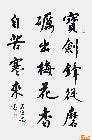 寶劍鋒從磨
礪出梅花香
自苦寒來